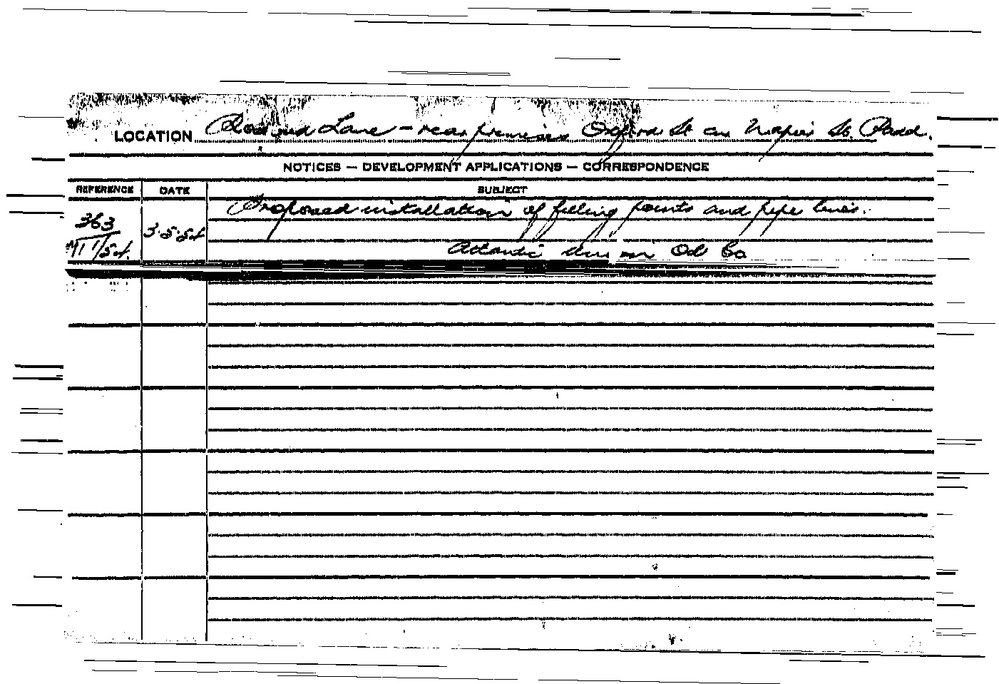 LOCATION Rosebud Lane - rear premises Oxford St cnr Napier St. Padd.
NOTICES — DEVELOPMENT APPLICATIONS — CORRESPONDENCE
REFERENCE DATE SUBJECT
363 3·5·54 Proposed installation of filling points and pipe lines.
/54. Atlantic Union Oil Co